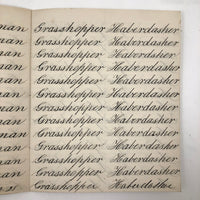 man Grasshopper Haberdasher
man Grasshopper Haberdasher
man Grasshopper Haberdasher
man Grasshopper Haberdasher
man Grasshopper Haberdasher
man Grasshopper Haberdasher
man Grasshopper Haberdasher
man Grasshopper Haberdasher
man Grasshopper Haberdasher
man Grasshopper Haberdasher
man Grasshopper Haberdasher
man Grasshopper Haberdasher
Grasshopper Haberdasher